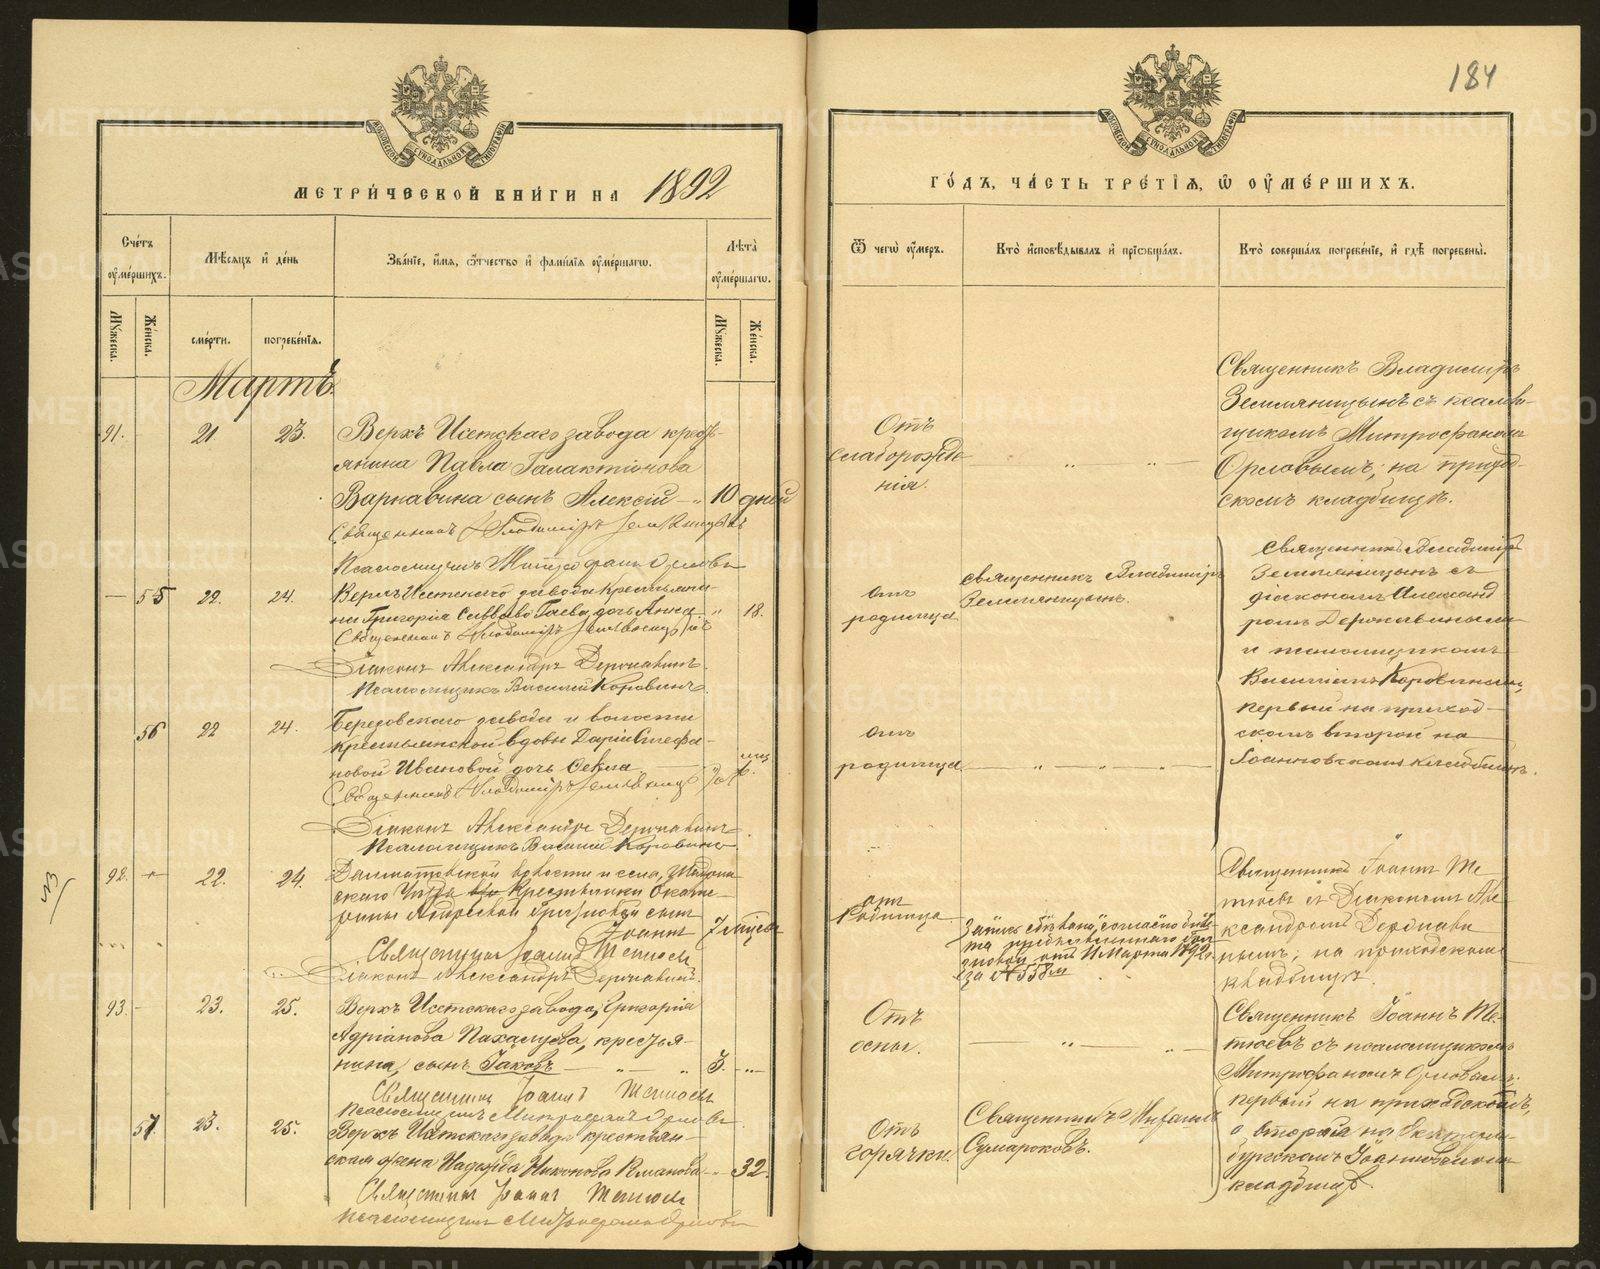 184
МЕТРИ́ЧЕСКОЙ КНИ́ГИ НА 1892
ГО́ДЪ, ЧА́СТЬ ТРЕ́ТІЯ, Ѿ ОУМЕ́РШИХЪ.
Сче́тъ оуме́ршихъ.
Мѣ́сяцъ и де́нь
Зва́ніе, и́мя, ѻ҆́тчество и фами́лія оуме́ршагѡ.
Лѣта̀ оуме́ршагѡ.
Ѿ чегѡ̀ оу́меръ.
Кто̀ исповѣ́дывалъ и пріѻбща́лъ.
Кто̀ соверша́лъ погребе́ніе, и гдѣ̀ погребены̀.
Мꙋ́жеска.
Же́нска.
сме́рти.
погребе́нія.
Мꙋ́жеска.
Же́нска.
Мартъ.
91.
21.
23.
Верхъ Исетскаго завода кресть-
янина Павла Галактіонова
Варнавина сынъ Алексій
10 дней
Священникъ Владиміръ Земляницынъ
Псаломщикъ Митрофанъ Орловъ
Отъ
слаборожде
нія.
Священникъ Владиміръ
Земляницынъ съ псаломщи-
щикомъ Митрофаномъ
Орловымъ; на приход-
скомъ кладбищѣ.
55
22.
24.
Верхъ Исетскаго завода крестьяни-
на Григорія Саввова Гаева дочь Анна
18.
Священникъ Владиміръ Земляницынъ
Діаконъ Александръ Державинъ.
Псаломщикъ Василій Коровинъ.
отъ
родимца
Священникъ Владиміръ
Земляницынъ.
Священникъ Владиміръ
Земляницынъ съ
діакономъ Александ
ромъ Державинымъ
и псаломщикомъ
Василіемъ Коровинымъ,
первый на приход-
скомъ второй на
Іоанновскомъ кладбищѣ.
56
22
24.
Березовскаго завода и волости
крестьянской вдовы Даріи Стефа-
новой Ивановой дочь Ѳекла
Священникъ Владиміръ Земляницынъ
Діаконъ Александръ Державинъ
Псаломщикъ Василій Коровинъ
отъ
родимца
92.
22.
24.
Далматовской волости и села, Шадрин-
скаго Уѣзда крестьянки Екате-
рины Андреевой сынъ
Іоаннъ
7 мѣсяц
Священникъ Іоаннъ Тетюевъ
Діаконъ Александръ Державинъ.
отъ
Родимца
за № 558м
Священникъ Іоаннъ Те
тюевъ съ Діакономъ Але
ксандромъ Держави
нымъ, на приходскомъ
кладбищѣ.
93.
23.
25.
Верхъ Исетскаго завода, Григорія
Адріанова Пахалуева, крестья-
нина, сынъ Іаковъ
3.
Священникъ Іоаннъ Тетюевъ
Псаломщикъ Митрофанъ Орловъ
Отъ
оспы.
Священникъ Іоаннъ Те-
тюевъ съ псаломщикомъ
Митрофаномъ Орловымъ;
первый на приходскомъ,
а вторая на Екатерин-
бургскомъ Іоанновскомъ
кладбищѣ.
57.
23.
25.
Верхъ Исетскаго завода крестьян-
ская жена Надежда Никонова
32.
Священникъ Іоаннъ Тетюевъ
Псаломщикъ Митрофанъ Орловъ
Отъ
горячки.
Священникъ
Сумароковъ.